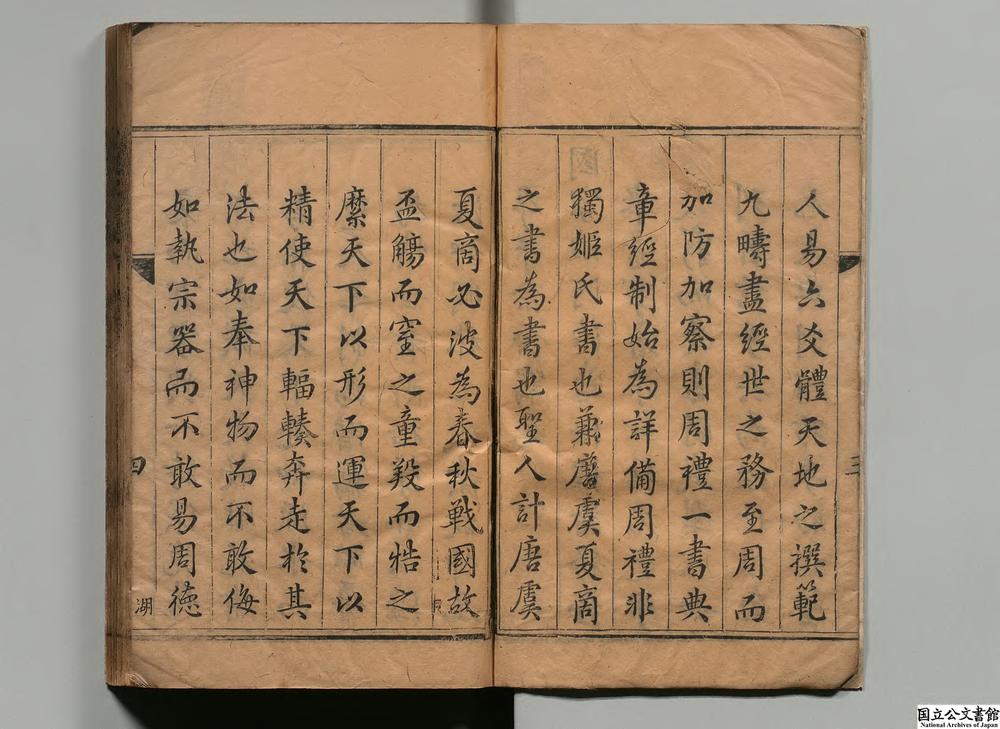 人易六爻體天地之撰範
九疇盡經世之務至周而
加防加察則周禮一書典
章經制始為詳備周禮非
獨姬氏書也蕪唐虞夏商
之書為書也聖人計唐虞
三
夏商必波為春秋戦國故
盃觴而窒之童羖而牿之
縻天下以形而運天下以
精使天下輻輳奔走於其
法也如奉神物而不敢侮
如執宗器而不敢易周德
四
湖
国立公文書館
National Archives of Japan